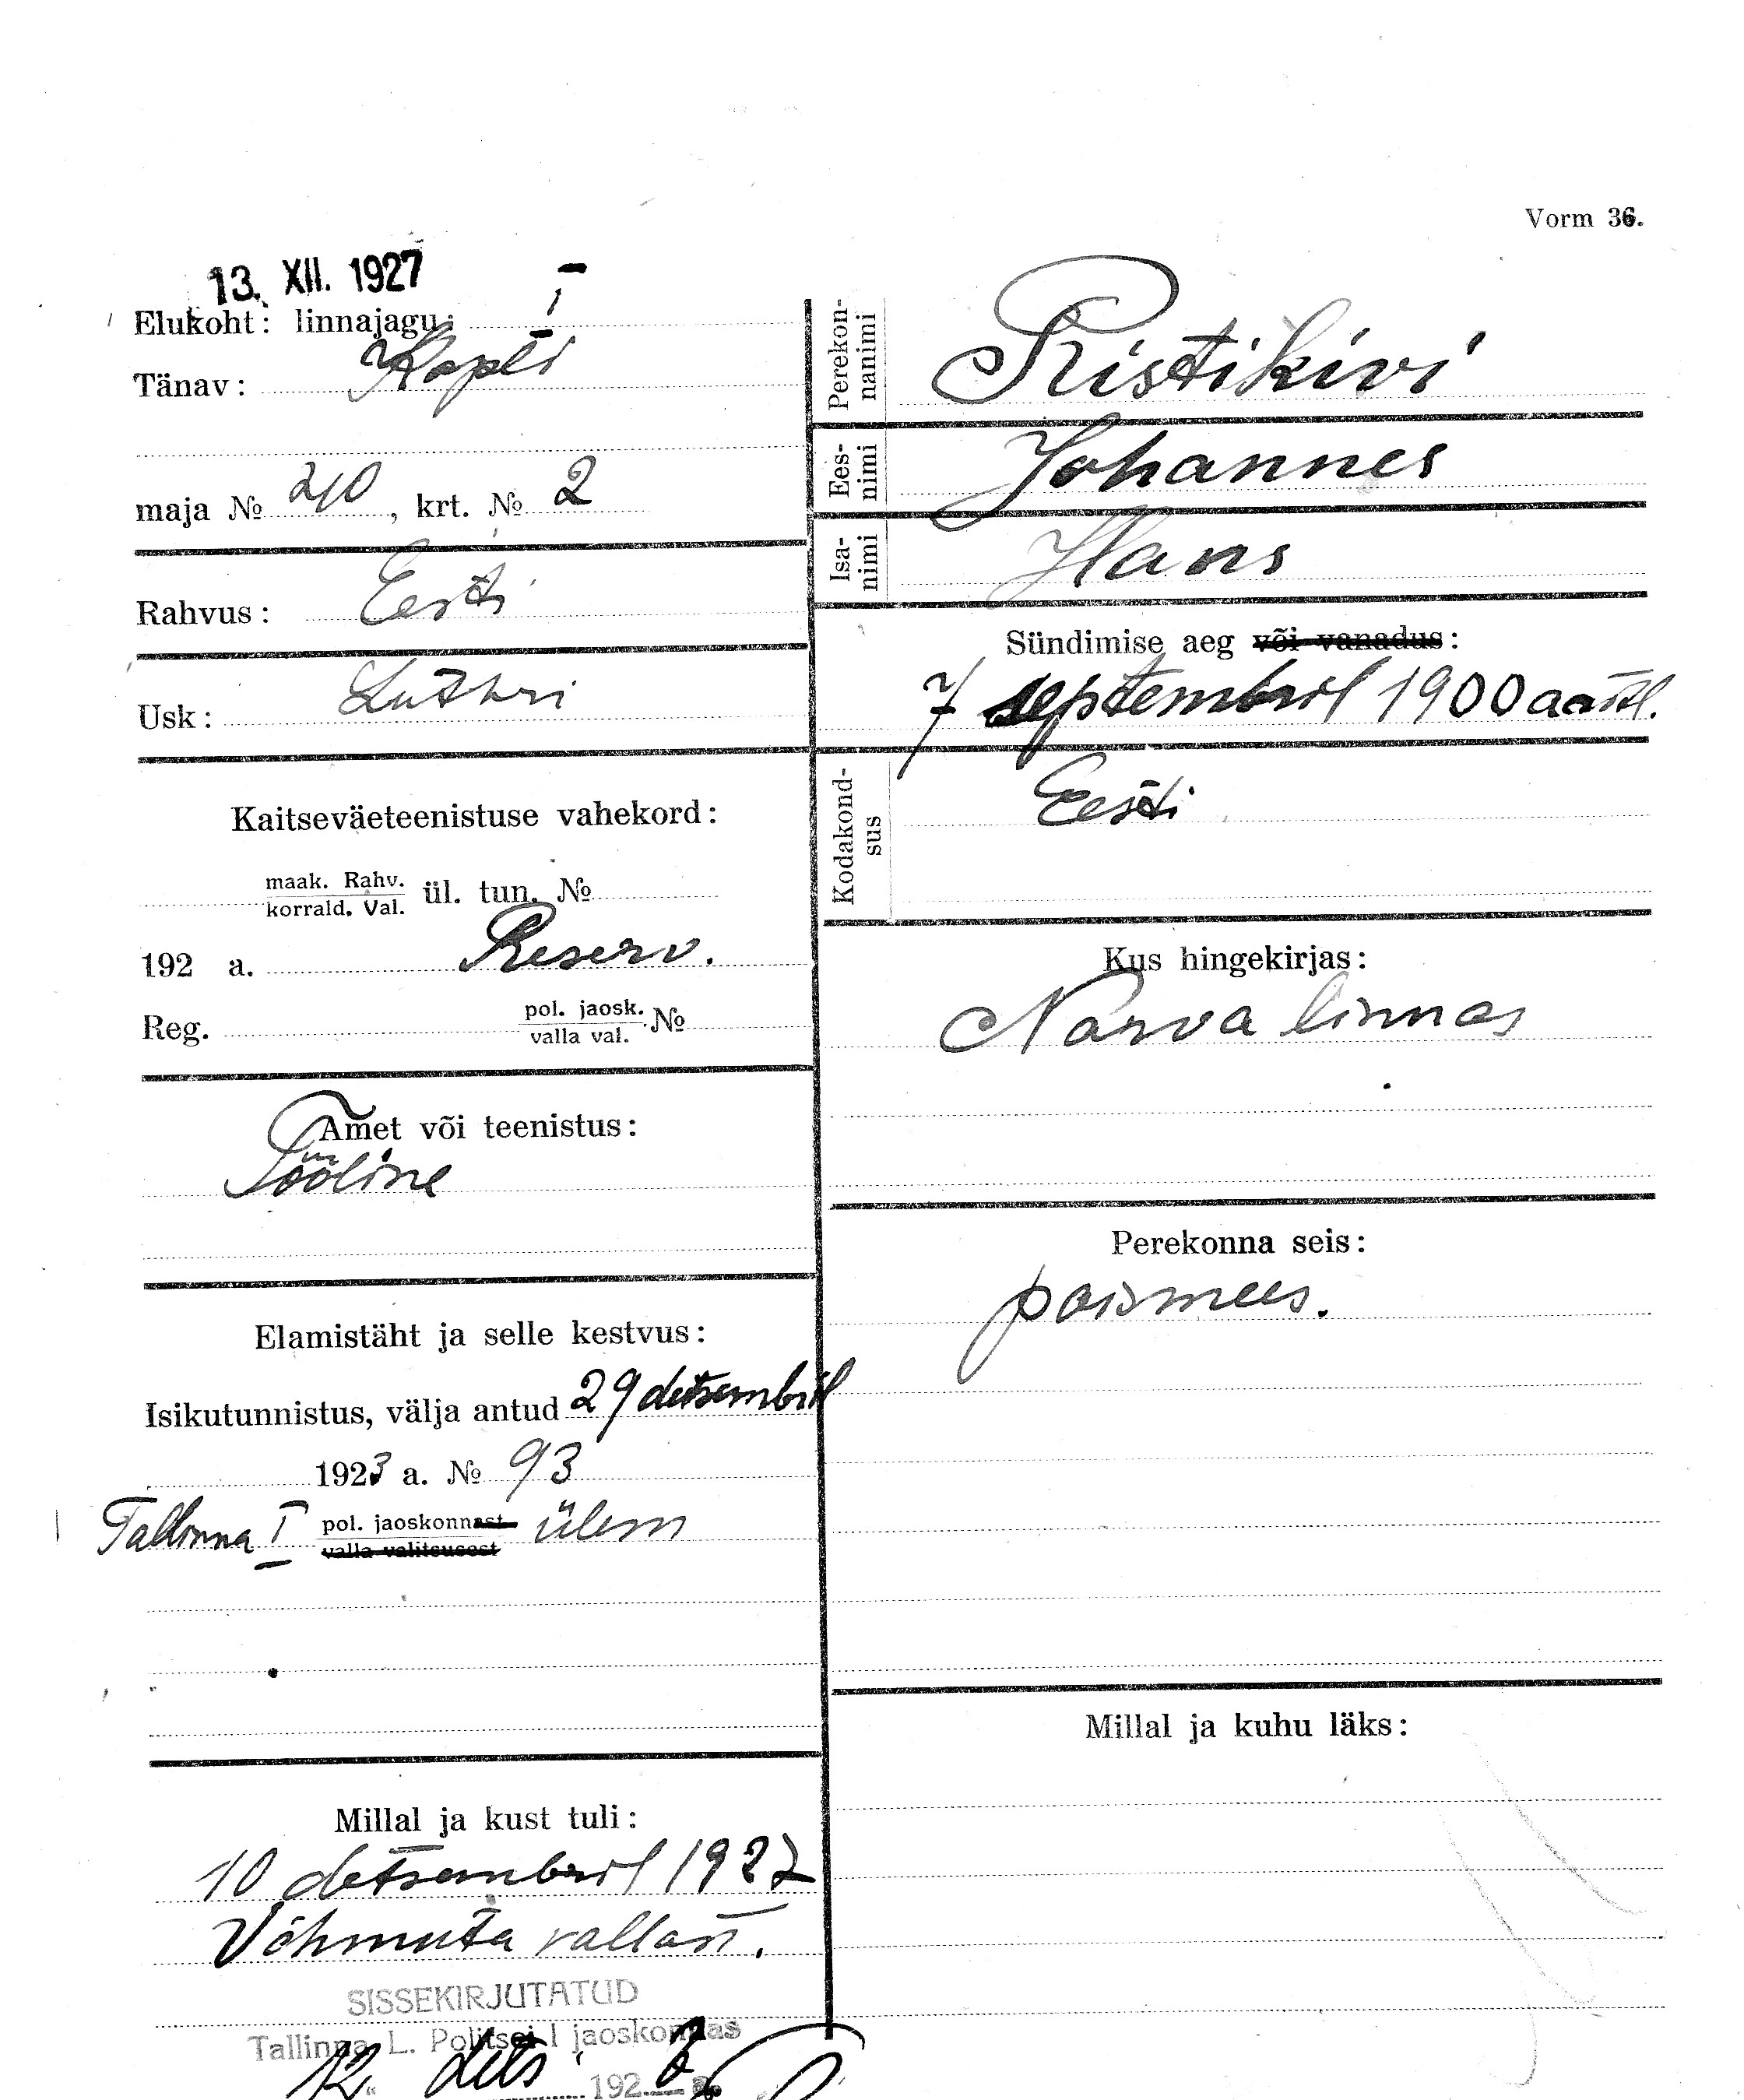 Vorm 36.
13. XII. 1927
Elukoht: linnajagu: I
Tänav: Kopli
maja № 40, krt. № 2
Rahvus: Eesti
Usk: Lutheri
Kaitseväeteenistuse vahekord:
maak. Rahv.
korrald. Val. ül. tun. №
192 a. Reserv.
Reg. pol. jaosk. №
valla val.
Amet või teenistus:
Tööline
Elamistäht ja selle kestvus:
Isikutunnistus, välja antud 29 detsembril
1923 a. № 93
Tallinna I pol. jaoskonnast ülem
valla valitsusest
Millal ja kust tuli:
10 detsembril 1927
Võhmuta vallast.
SISSEKIRJUTATUD
Tallinna L. Politsei I jaoskonnas
12. dets. 192 a.
Perekon-
nanimi Ristikivi
Ees-
nimi Johannes
Isa-
nimi Hans
Sündimise aeg või vanadus:
7 septembril 1900 aastl.
Kodakond-
sus Eesti
Kus hingekirjas:
Narva linnas
Perekonna seis:
poismees.
Millal ja kuhu läks: